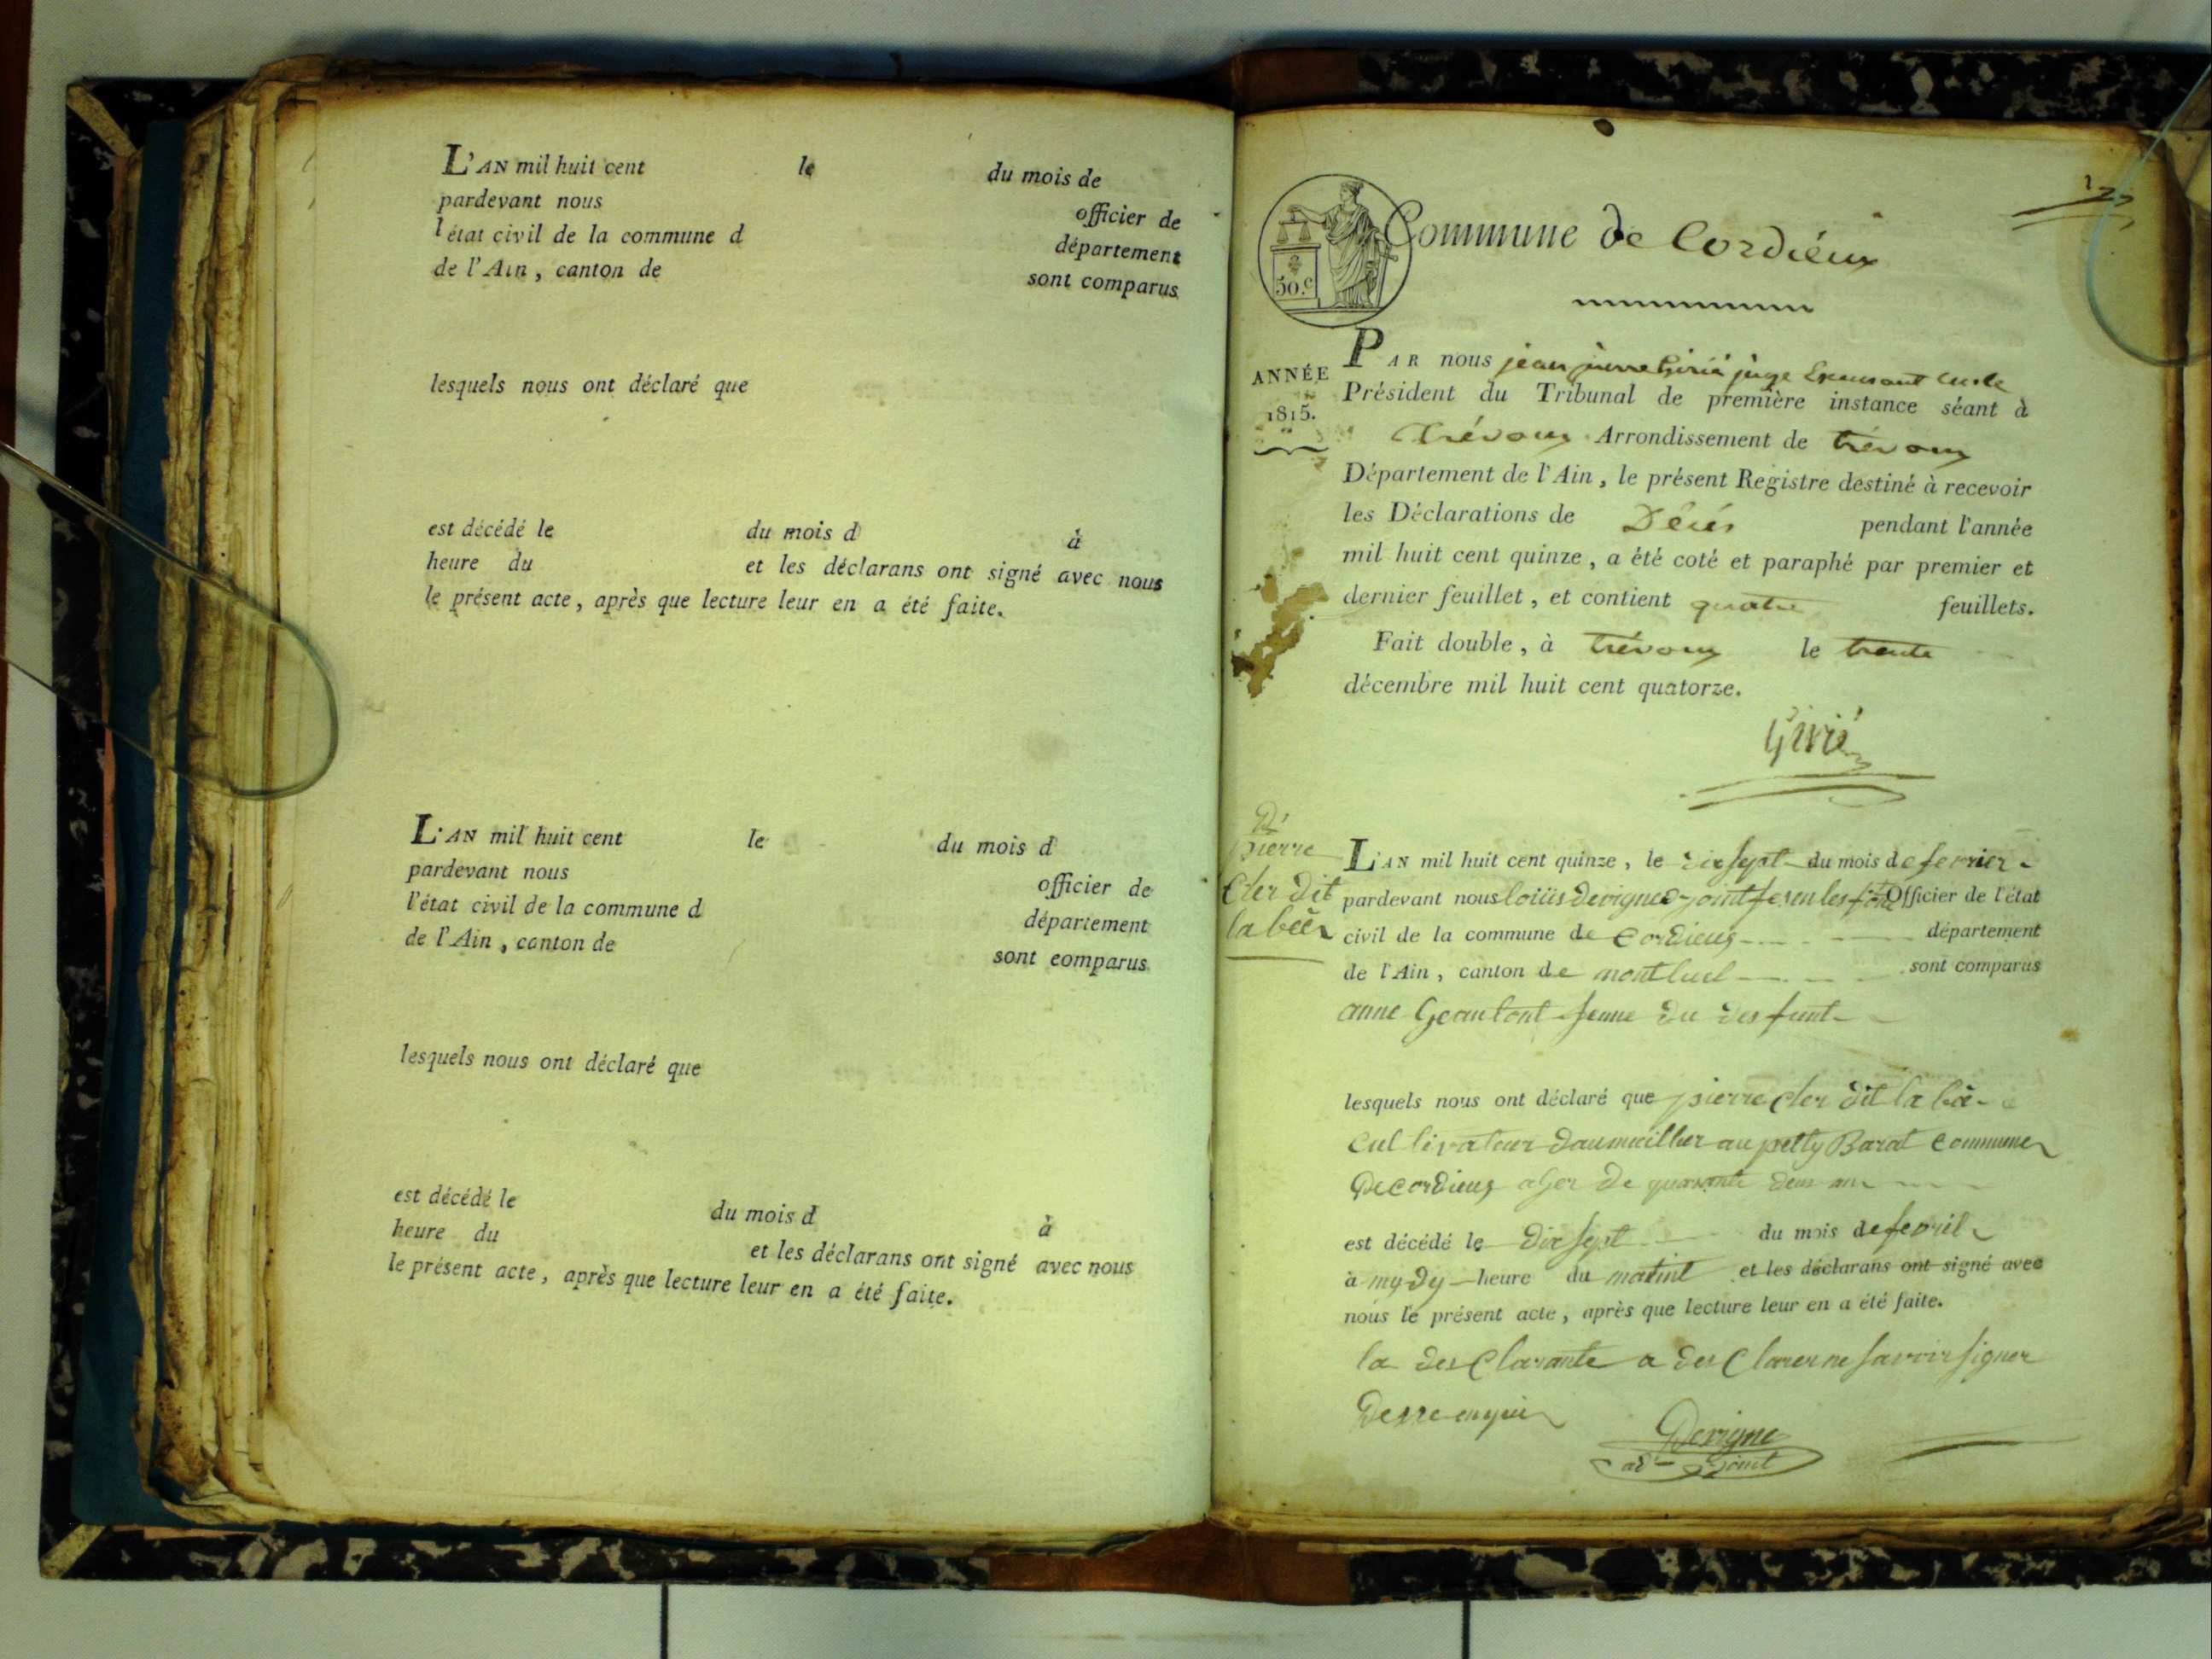 L'AN mil huit cent le du mois de
pardevant nous officier de
l'état civil de la commune d département
de l'Ain, canton de sont comparus
lesquels nous ont déclaré que
est décédé le du mois d à
heure du et les déclarans ont signé avec nous
le présent acte, après que lecture leur en a été faite.
L'AN mil huit cent le du mois d
pardevant nous officier de
l'état civil de la commune d département
de l'Ain, canton de sont comparus
lesquels nous ont déclaré que
est décédé le du mois d à
heure du et les déclarans ont signé avec nous
le présent acte, après que lecture leur en a été faite.
Commune de Cordieux
50.c
ANNÉE
1815.
PAR nous jean pierre Girié juge
Président du Tribunal de première instance séant à
Trévoux Arrondissement de trévoux
Département de l'Ain, le présent Registre destiné à recevoir
les Déclarations de Décés pendant l'année
mil huit cent quinze, a été coté et paraphé par premier et
dernier feuillet, et contient quatre feuillets.
Fait double, à trévoux le trente
décembre mil huit cent quatorze.
Girié
pierre
Cler dit
la bée
L'AN mil huit cent quinze, le dix sept du mois de fevrier
pardevant nous loüis devigne Officier de l'état
civil de la commune de cordieux département
de l'Ain, canton de montluel sont comparus
anne femme du des funt
lesquels nous ont déclaré que pierre cler dit la bée
cul tivateur daumicillier au petty Barat commune
de cordieux de quarante deux an
est décédé le dix sept du mois de fevril
à my dy heure du matint et les déclarans ont signé avec
nous le présent acte, après que lecture leur en a été faite.
la des clarante a des clarer ne savoir signer
Devigne
ad joint